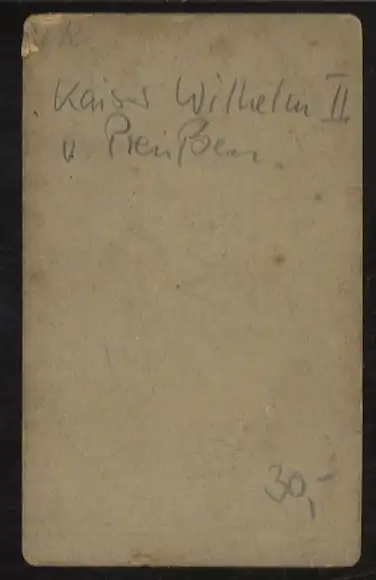 Kaiser Wilhelm II
v Preußen.
30,-